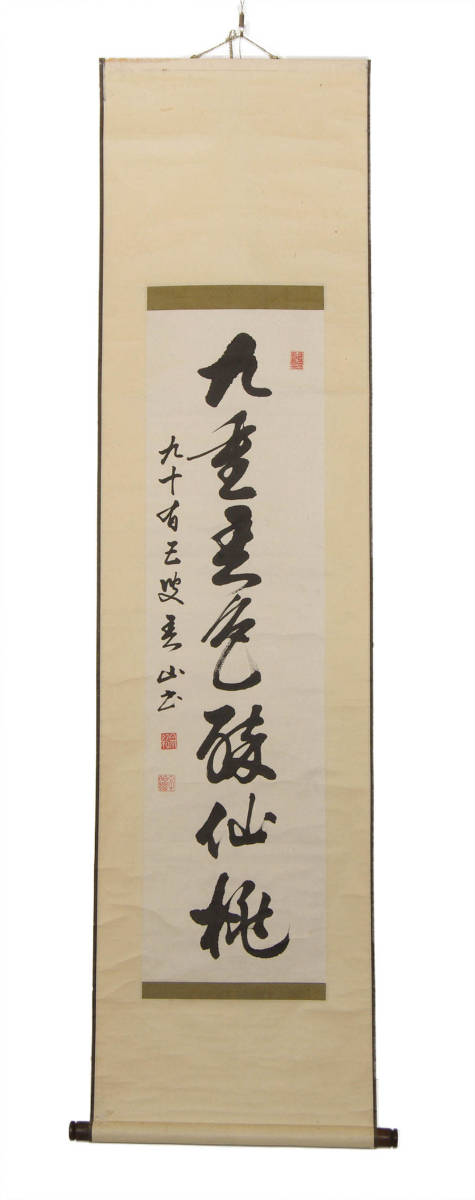 九重春色醉仙桃
九十有五叟春山书